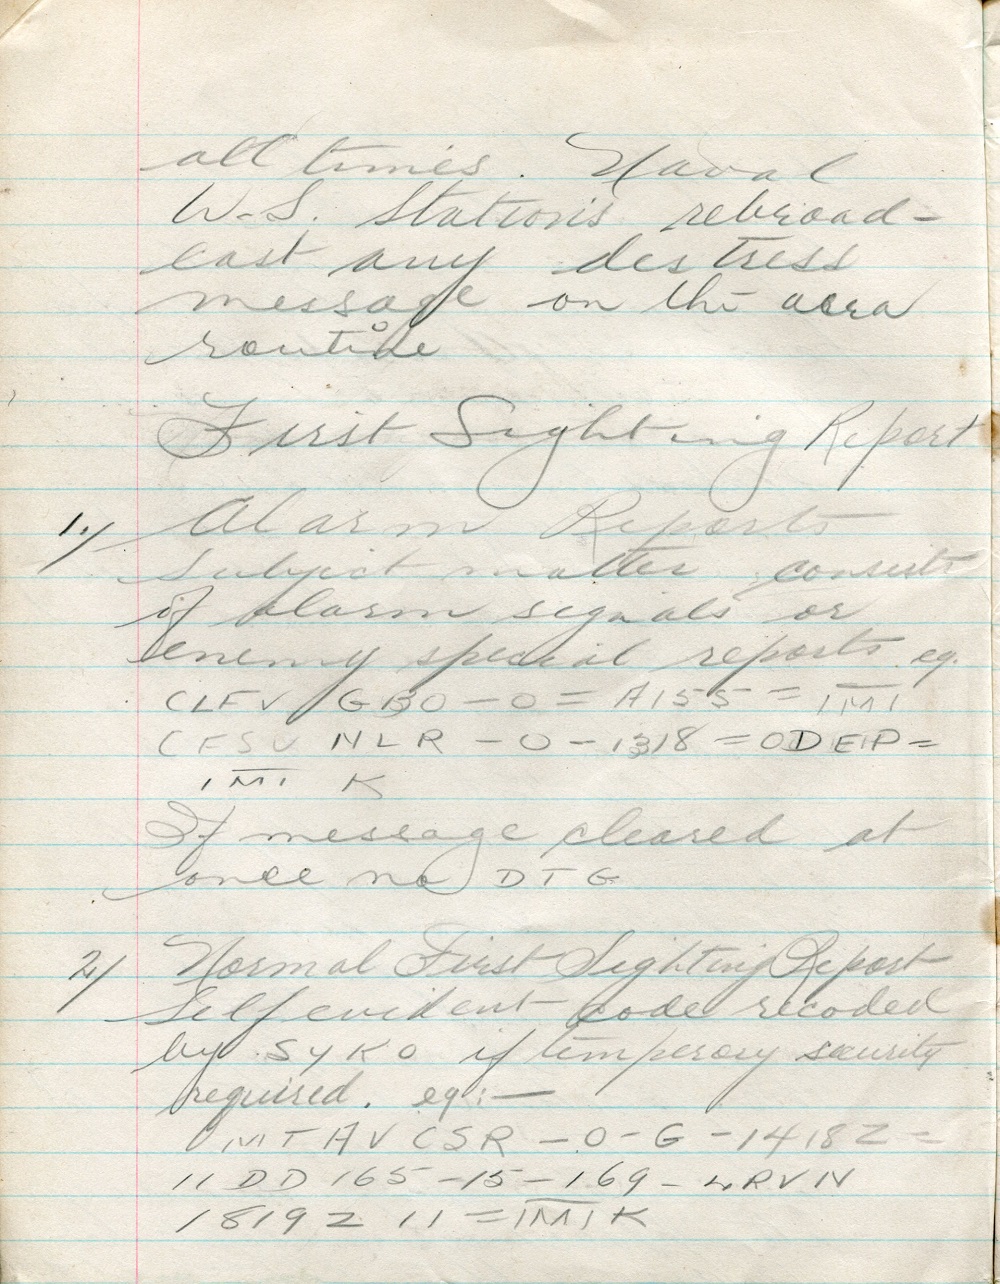 all times. Naval
W.S. Stations rebroad-
cast any destress
message on the area
routine
First Sighting Report
1.) Alarm Reports
Subject matter consists
of alarm signals or
enemy special reports eg.
CLFV GBO - O = A155 = IMI
CFSV NLR - O - 1318 = ODEIP =
IMI K
If message cleared at
once no DTG
2) Normal First Sighting Report
Self evident code recoded
by SYKO if temperary security
required. eg:—
MTA V CSR - O - G - 1418Z =
11 DD 165 - 15 - 169 - LRVN
1819Z 11 = IMI K